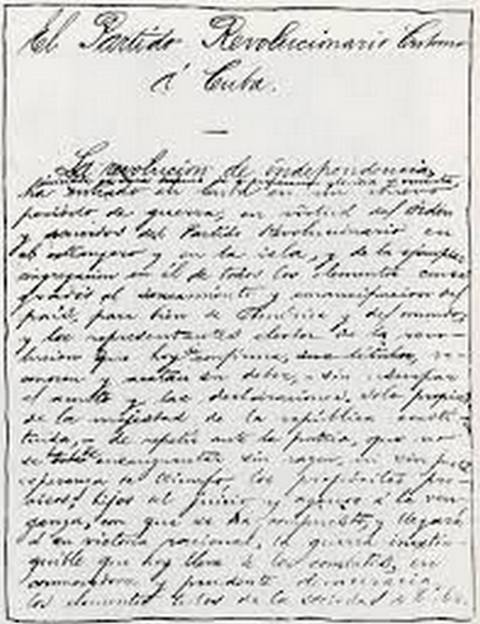 El Partido Revolucionario Cubano
á Cuba.
La revolucion de independencia,
ha entrado en Cuba en un nuevo
período de guerra, en virtud del orden
y acuerdos del Partido Revolucionario en
el extranjero y en la isla, y de la ejemplar
congregacion en él de todos los elementos consa-
grados al saneamiento y emancipacion del
país, para bien de América y del mundo;
y los representantes electos de la revo-
lucion que hoy se confirma, re-
conocen y acatan su deber, - sin usurpar
el acento y las declaraciones solo propias
de la majestad de la república consti-
tuida, - de repetir ante la patria, que no
se ensangrentar sin razon, ni sin justa
esperanza de triunfo, los propósitos pre-
cisos, hijos del juicio y ajenos á la ven-
ganza, con que se ha compuesto, y llegará
á su victoria racional, la guerra inextin-
guible que hoy lleva á los combates, en
conmovedora y prudente democracia,
los elementos todos de la sociedad de Cuba.